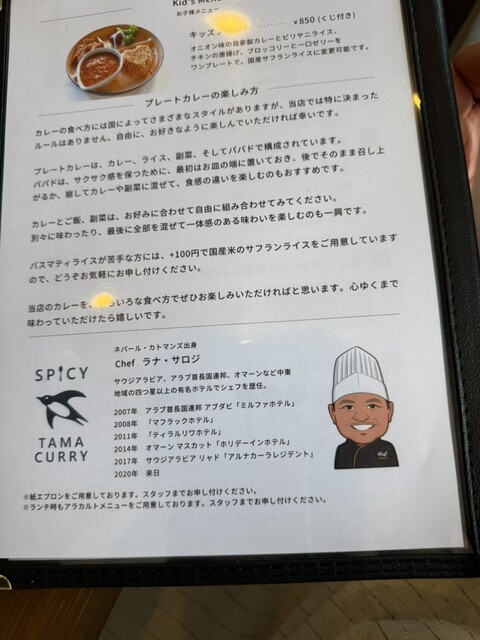 Kid's Menu
お子様メニュー
キッズ
¥850 (くじ付き)
オニオン味の自家製カレーとビリヤニライス、
チキンの唐揚げ、ブロッコリーと一口ゼリーを
ワンプレートで。国産サフランライスに変更可能です。
プレートカレーの楽しみ方
カレーの食べ方には国によってさまざまなスタイルがありますが、当店では特に決まった
ルールはありません。自由に、お好きなように楽しんでいただければ幸いです。
プレートカレーは、カレー、ライス、副菜、そしてパパドで構成されています。
パパドは、サクサク感を保つために、最初はお皿の端に置いておき、後でそのまま召し上
がるか、崩してカレーや副菜に混ぜて、食感の違いを楽しむのもおすすめです。
カレーとご飯、副菜は、お好みに合わせて自由に組み合わせてみてください。
別々に味わったり、最後に全部を混ぜて一体感のある味わいを楽しむのも一興です。
バスマティライスが苦手な方には、+100円で国産米のサフランライスをご用意しています
ので、どうぞお気軽にお申し付けください。
当店のカレーを、いろいろな食べ方でぜひお楽しみいただければと思います。心ゆくまで
味わっていただけたら嬉しいです。
SPiCY
TAMA
CURRY
ネパール・カトマンズ出身
Chef ラナ・サロジ
サウジアラビア、アラブ首長国連邦、オマーンなど中東
地域の四つ星以上の有名ホテルでシェフを歴任。
2007年 アラブ首長国連邦 アブダビ「ミルファホテル」
2008年 「マフラックホテル」
2011年 「ティラルリワホテル」
2014年 オマーン マスカット「ホリデーインホテル」
2017年 サウジアラビア リヤド「アルナカーラレジデント」
2020年 来日
※紙エプロンをご用意しております。スタッフまでお申し付けください。
※ランチ時もアラカルトメニューをご用意しております。スタッフまでお申し付けください。